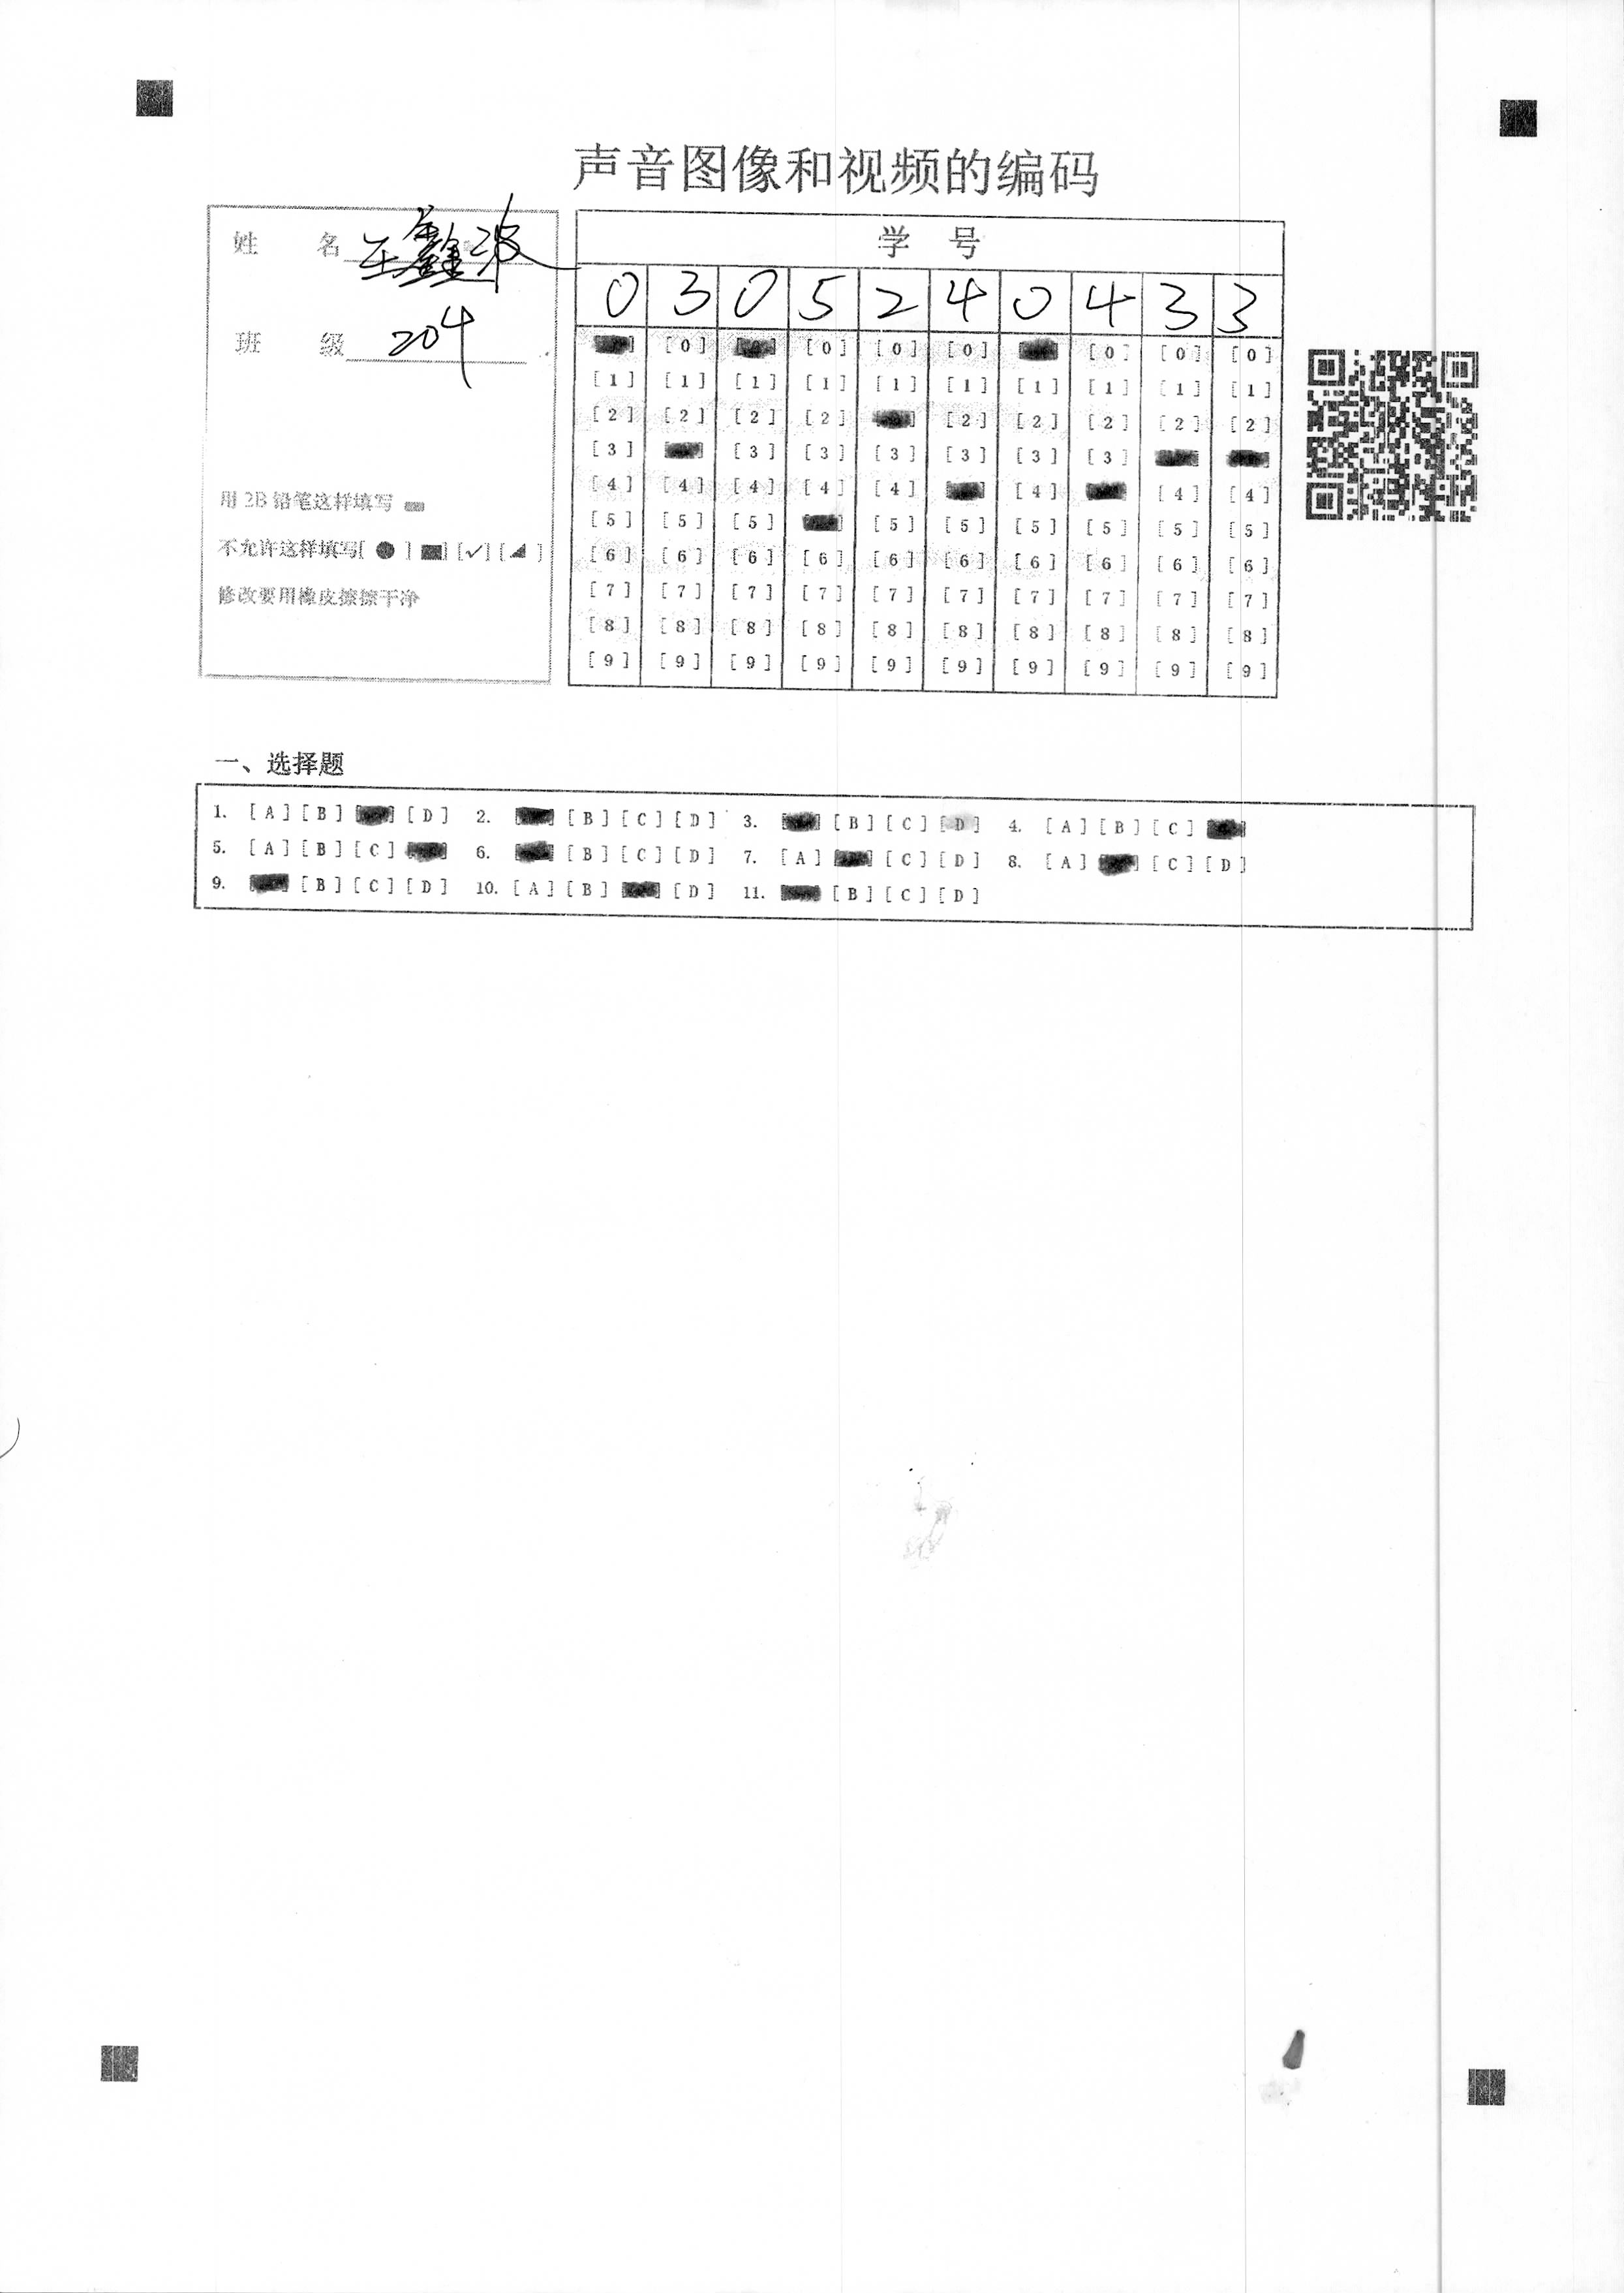 声音图像和视频的编码
姓 名 王鑫波
班 级 204
用 2B 铅笔这样填写
不允许这样填写[ ● ] ■] [✓] [◢ ]
修改要用橡皮擦擦干净
学 号
0 3 0 5 2 4 0 4 3 3
[0] [0] [0] [0] [0] [0]
[1] [1] [1] [1] [1] [1] [1] [1] [1] [1]
[2] [2] [2] [2] [2] [2] [2] [2] [2]
[3] [3] [3] [3] [3] [3] [3]
[4] [4] [4] [4] [4] [4] [4] [4]
[5] [5] [5] [5] [5] [5] [5] [5] [5]
[6] [6] [6] [6] [6] [6] [6] [6] [6] [6]
[7] [7] [7] [7] [7] [7] [7] [7] [7] [7]
[8] [8] [8] [8] [8] [8] [8] [8] [8] [8]
[9] [9] [9] [9] [9] [9] [9] [9] [9] [9]
一、选择题
1. [A] [B] [D] 2. [B] [C] [D] 3. [B] [C] [D] 4. [A] [B] [C]
5. [A] [B] [C] 6. [B] [C] [D] 7. [A] [C] [D] 8. [A] [C] [D]
9. [B] [C] [D] 10. [A] [B] [D] 11. [B] [C] [D]